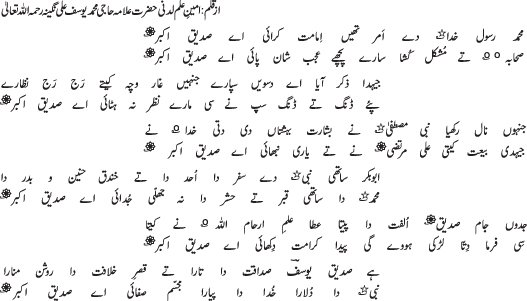 از قلم: امینِ علمِ لدنی حضرت علامہ حاجی محمد یوسف علی نگینہ رحمۃ اللہ تعالیٰ
محمد رسول خداﷺ دے امر تھیں امامت کرائی اے صدیق اکبرؓ
صحابہؓ تے مشکل کشا سارے پچھے عجب شان پائی اے صدیق اکبرؓ
جیہدا ذکر آیا اے دسویں سپارے جنہیں غار وچہ کیتے رَج رَج نظارے
پئے ڈنگ تے ڈنگ سپ نے سی مارے نظر نہ ہٹائی اے صدیق اکبرؓ
جنہوں نال رکھیا نبی مصطفیٰﷺ نے بشارت بہشتاں دی دتی خدا نے
جیہدی بیعت کیتی علی مرتضیٰؓ نے تے یاری نبھائی اے صدیق اکبرؓ
ابوبکر ساتھی نبیﷺ دے سفر دا اُحد دا تے خندق حنین و بدر دا
محمدﷺ دا ساتھی قبر تے حشر دا نہ جھلی جُدائی اے صدیق اکبرؓ
جدوں جام صدیقؓ اُلفت دا پیتا عطا علمِ ارحام اللہ نے کیتا
سی فرما دِتا لڑکی ہووے گی پیدا کرامت دِکھائی اے صدیق اکبرؓ
ہے صدیق یوسفؔ صداقت دا تارا تے قصرِ خلافت دا روشن منارا
نبیﷺ دا دُلارا خُدا دا پیارا مجسّم صفائی اے صدیق اکبرؓ